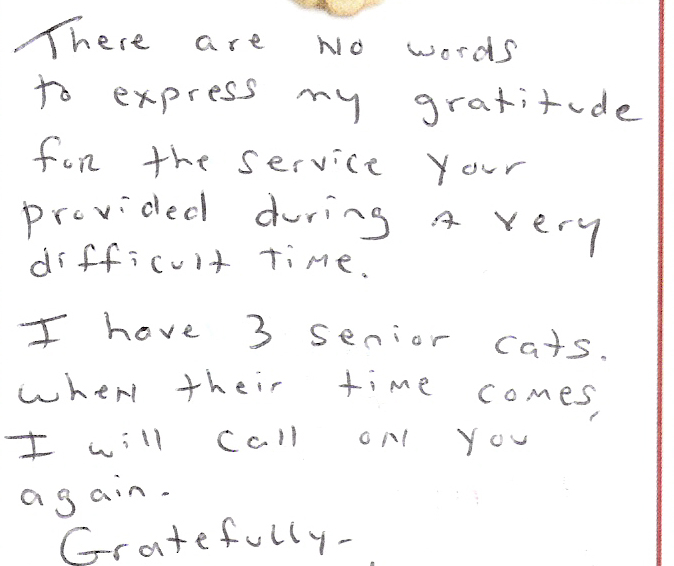 There are no words
to express my gratitude
for the service your
provided during a very
difficult time.
I have 3 senior cats.
when their time comes,
I will call on you
again.
Gratefully-